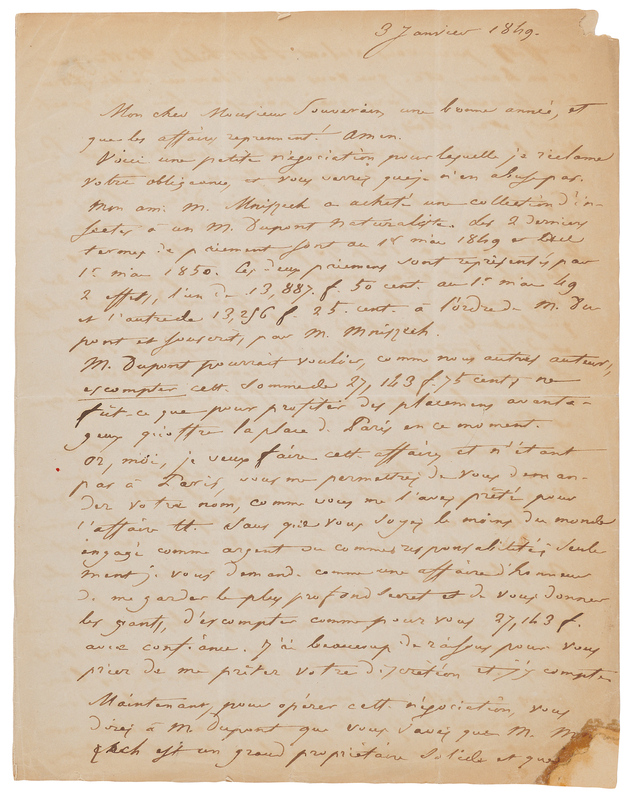 3 Janvier 1849.
Mon cher Monsieur Souverain, une bonne année, et
que les affaires reprennent! Amen.
Voici une petite négociation pour laquelle je réclame
votre obligeance, et vous verrez que je n'en abuse pas.
Mon ami M. Mniszech a acheté une collection d'in-
sectes à un M. Dupont naturaliste. les 2 derniers
termes de paiement sont au 1er mai 1849 et
1er mai 1850. Ces deux paiemens sont représentés par
2 effets, l'un de 13,887. f 50 cent. au 1er mai 49
et l'autre de 13,256 f 25. cent. à l'ordre de M. Du
pont et souscrits, par M. Mniszech.
M. Dupont pourrait vouloir, comme nous autres auteurs,
escompter cette somme de 27,143 f. 75 cents ne
fût-ce que pour profiter des placemens avanta-
geux qu'offre la place de Paris en ce moment.
Or, moi, je veux faire cette affaire, et n'étant
pas à Paris, vous me permettrez de vous deman-
der votre nom, comme vous me l'avez prêté pour
l'affaire sans que vous soyez le moins du monde
engagé comme argent ou comme responsabilité; seule
ment je vous demande comme une affaire d'honneur
de me garder le plus profond secret et de vous donner
les gants, d'escompter comme pour vous 27,143 f.
avec confiance. J'ai beaucoup de raisons pour vous
prier de me prêter votre discrétion et j'y compte
Maintenant, pour opérer cette négociation, vous
direz à M. Dupont que vous savez que M.
zech est un grand propriétaire solide et que